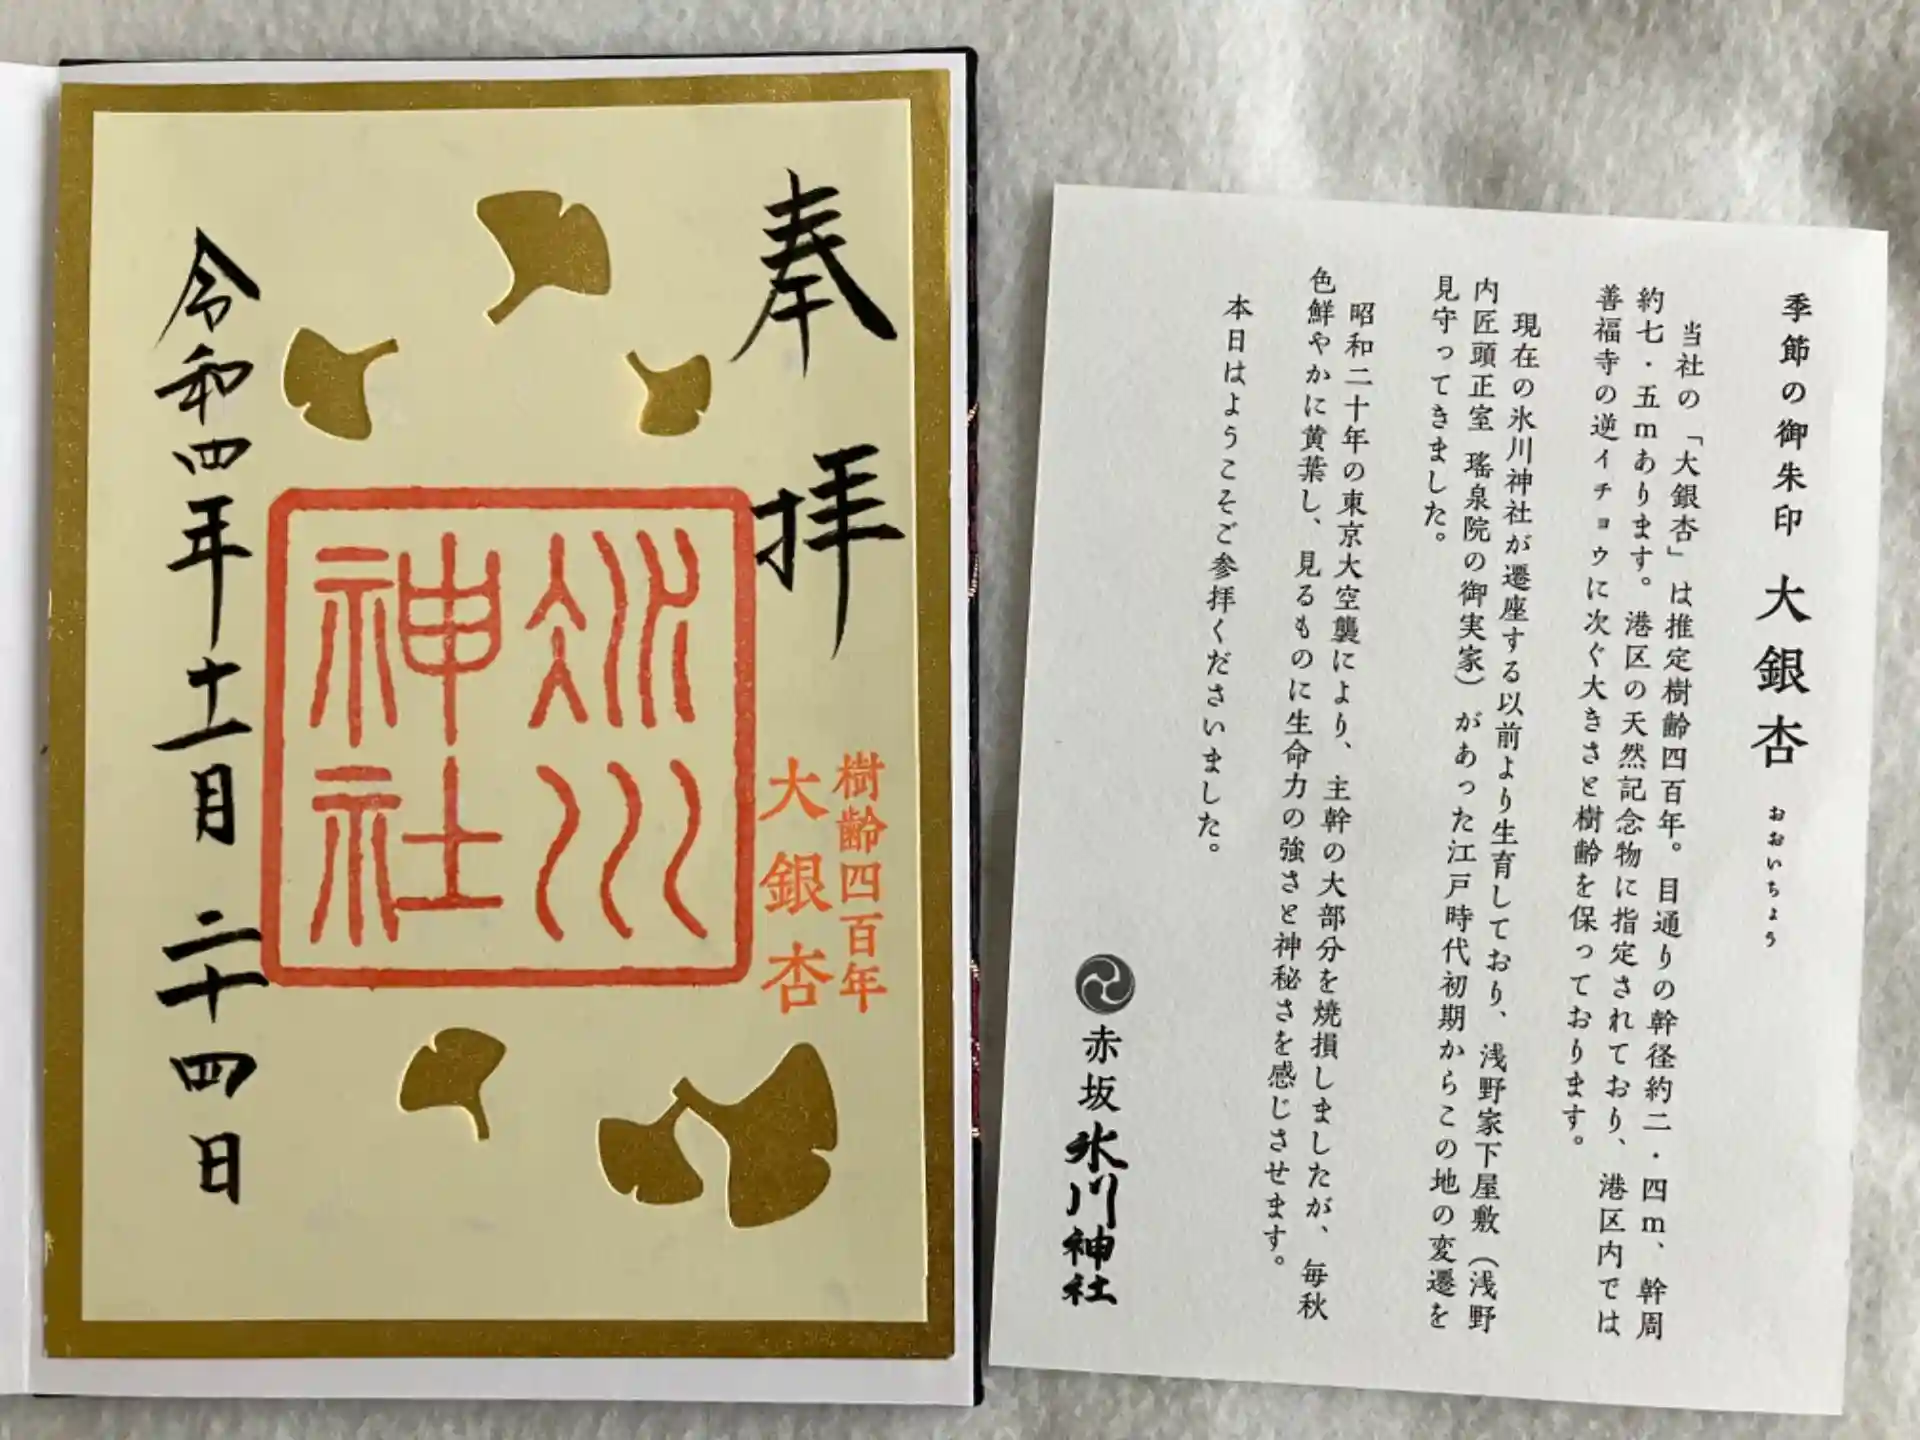 奉拝
樹齢四百年
大銀杏
氷川
神社
令和四年十一月二十四日
季節の御朱印 大銀杏 おおいちょう
当社の「大銀杏」は推定樹齢四百年。目通りの幹径約二・四m、幹周
約七・五mあります。港区の天然記念物に指定されており、港区内では
善福寺の逆イチョウに次ぐ大きさと樹齢を保っております。
現在の氷川神社が遷座する以前より生育しており、浅野家下屋敷（浅野
内匠頭正室 瑤泉院の御実家）があった江戸時代初期からこの地の変遷を
見守ってきました。
昭和二十年の東京大空襲により、主幹の大部分を焼損しましたが、毎秋
色鮮やかに黄葉し、見るものに生命力の強さと神秘さを感じさせます。
本日はようこそご参拝くださいました。
赤坂氷川神社